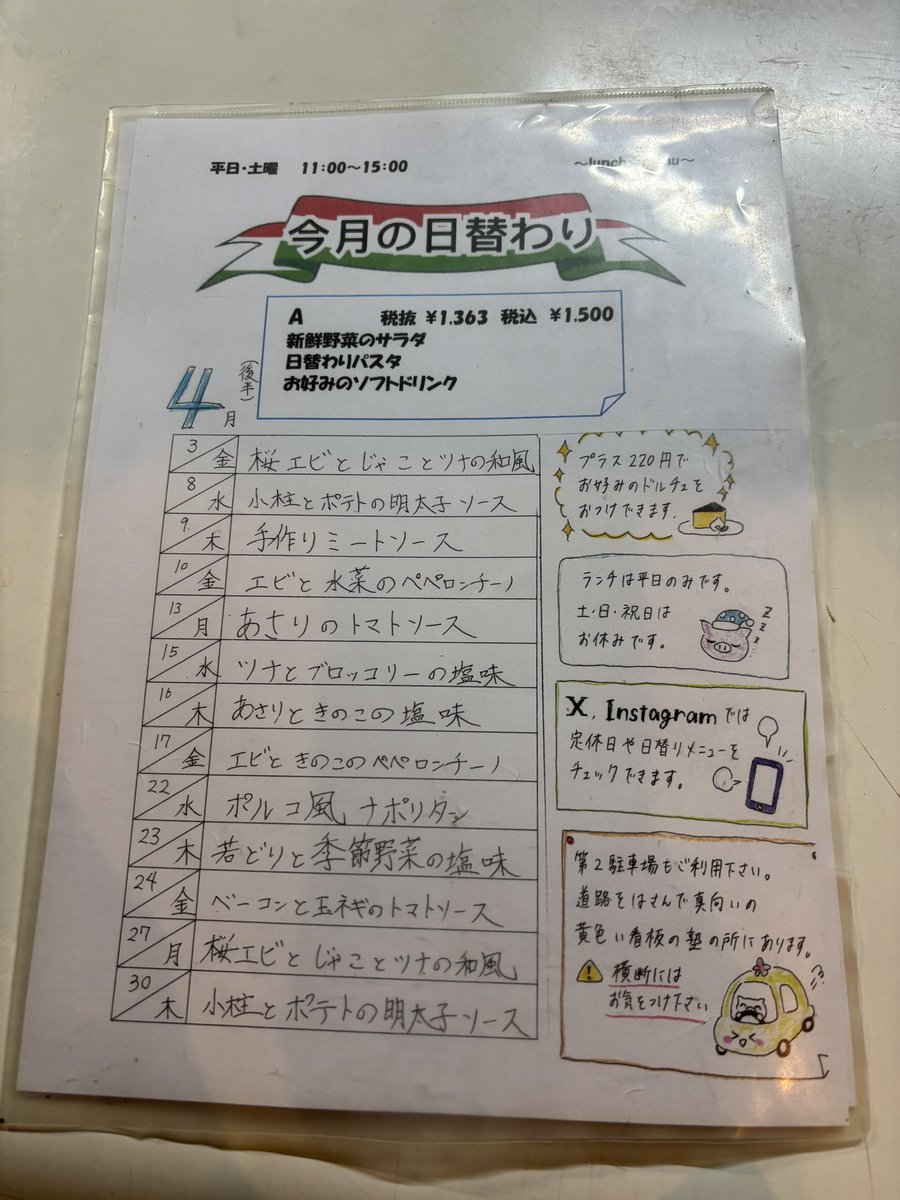 平日・土曜 11:00～15:00
今月の日替わり
A 税抜 ¥1,363 税込 ¥1,500
新鮮野菜のサラダ
日替わりパスタ
お好みのソフトドリンク
4月
(後半)
3 金 桜エビとじゃことツナの和風
8 水 小柱とポテトの明太子ソース
9 木 手作りミートソース
10 金 エビと水菜のペペロンチーノ
13 月 あさりのトマトソース
15 水 ツナとブロッコリーの塩味
16 木 あさりときのこの塩味
17 金 エビときのこのペペロンチーノ
22 水 ポルコ風ナポリタン
23 木 若どりと季節野菜の塩味
24 金 ベーコンと玉ネギのトマトソース
27 月 桜エビとじゃことツナの和風
30 木 小柱とポテトの明太子ソース
プラス220円で
お好みのドルチェを
おつけできます.
ランチは平日のみです。
土・日・祝日は
お休みです。
z z z z
X, Instagramでは
定休日や日替りメニューを
チェックできます。
第2駐車場もご利用下さい。
道路をはさんで真向いの
黄色い看板の塾の所にあります。
横断には
お気をつけ下さい